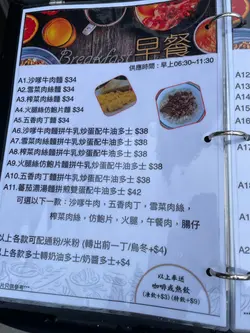 Breakfast 早餐
供應時間：早上06:30~11:30
A1.沙嗲牛肉麵 $34
A2.雪菜肉絲麵 $34
A3.榨菜肉絲麵 $34
A4.火腿絲仿鮑片麵 $34
A5.五香肉丁麵 $34
A6.沙嗲牛肉麵拼牛乳炒蛋配牛油多士 $38
A7.雪菜肉絲麵拼牛乳炒蛋配牛油多士 $38
A8.榨菜肉絲麵拼牛乳炒蛋配牛油多士 $38
A9.火腿絲仿鮑片麵拼牛乳炒蛋配牛油多士 $38
A10.五香肉丁麵拼牛乳炒蛋配牛油多士 $38
A11.蕃茄濃湯麵拼煎雙蛋配牛油多士 $42
可選以下一款：沙嗲牛肉，五香肉丁，雪菜肉絲，
榨菜肉絲，仿鮑片，火腿，午餐肉，腸仔
以上各款可配通粉/米粉 (轉出前一丁/烏冬+$4)
以上各款多士轉奶油多士/奶醬多士+$4
以上奉送
咖啡或熱飲
(凍飲+$3) (特飲+$9)
A12
A13
A14
A15
A16
A17